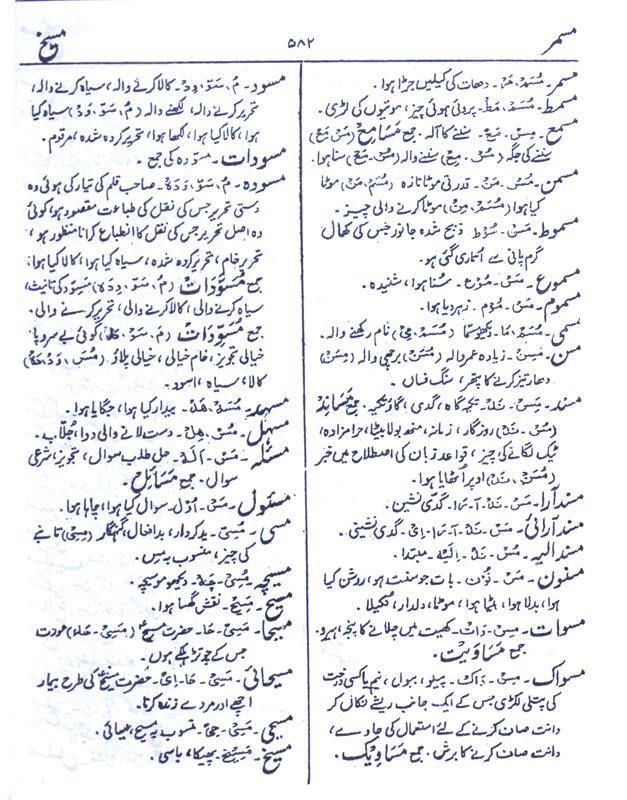 مسمر
۵۸۲
مسیخ
مسمر۔ مُسَمْ، مَرْ۔ دھات کی کیلیں جڑا ہوا۔
مسمط۔ مُسَمْ، مَط۔ پروئی ہوئی چیز، موتیوں کی لڑی۔
مسمع۔ مِسْ، مَعْ۔ سننے کا آلہ۔ جمع مَسَامِعْ (مَسْ، مَعْ)
سننے کی جگہ (مُسْ، مِعْ) سننے والہ (مُسْ، مَعْ) سنا ہوا۔
مسمن۔ مُسْ، مَنْ۔ قدرتی موٹا تازہ (مُسَمْ، مَنْ) موٹا
کیا ہوا (مُسَمْ، مِنْ) موٹا کرنے والی چیز۔
مسموط۔ مَسْ، مُوْط ذبح شدہ جانور جس کی کھال
گرم پانی سے اُتاری گئی ہو۔
مسموع۔ مَسْ، مُوْع۔ سُنا ہوا، شنیدہ۔
مسموم۔ مَسْ، مُوْم۔ زہر دیا ہوا۔
مسمی۔ مُسَمْ، مَا۔ دیکھو مسما (مُسَمْ، مِیْ) نام رکھنے والہ۔
مسن۔ مُسِنْ۔ زیادہ عمر والہ (مُسَنْ) برچھی والہ (مِسَنْ)
دھار تیز کرنے کا پتھر، سنگ فساں۔
مسند۔ مَسْ، نَدْ۔ تکیہ گاہ، گدی، گاؤ تکیہ۔ جمع مَسَانِدْ
(مُسْ، نَدْ) روزگار، زمانہ، منھ بولا بیٹا، حرام زادہ،
ٹیک لگانے کی چیز، قواعد زبان کی اصطلاح میں خبر
(مُسَنْ، نَدْ) اوپر اُٹھایا ہوا۔
مسند آرا۔ مَسْ، نَدْ، آ، رَا۔ گدّی نشین۔
مسند آرائی۔ مَسْ، نَدْ، آ، رَا، اِیْ۔ گدی نشینی۔
مسند الیہ۔ مُسْ، نَدْ، اِلَیْہ۔ مبتدا۔
مسنون۔ مَسْ، نُوْن۔ بات جو سنت ہو، روشن کیا
ہوا، بدلا ہوا، بٹا ہوا، موٹا، دلدار، نکیلا۔
مسوات۔ مِسْ، وَات۔ کھیت میں چلانے کا پنجہ، ہیرو۔
جمع مَسَاوِیْت۔
مسواک۔ مِسْ، وَاک۔ پیلو، ببول، نیم یا کسی درخت
کی پتلی لکڑی جس کے ایک جانب ریشے نکال کر
دانت صاف کرنے کے لئے استعمال کی جاوے،
دانت صاف کرنے کا برش۔ جمع مَسَاوِیک۔
مسود۔ مُ، سَوْ، وِدْ۔ کالا کرنے والہ، سیاہ کرنے والہ،
تحریر کرنے والہ، لکھنے والہ (مُ، سَوْ، وَدْ) سیاہ کیا
ہوا، کالا کیا ہوا، لکھا ہوا، تحریر کردہ شدہ، مرقوم۔
مسودات۔ مسودہ کی جمع۔
مسودہ۔ مُ، سَوْ، وَدَہْ۔ صاحب قلم کی تیار کی ہوئی وہ
دستی تحریر جس کی نقل کی طباعت مقصود ہو، کوئی
دہ اصل تحریر جس کی نقل کا انطباع کرانا منظور ہو،
تحریر خام، تحریر کردہ شدہ، سیاہ کیا ہوا، کالا کیا ہوا،
جمع مُسَوَّدَاتْ (مُ، سَوْ، وِدَہْ) مُسَوِّد کی تانیث،
سیاہ کرنے والی، کالا کرنے والی، تحریر کرنے والی،
جمع مُسَوِّدَاتْ کوئی بے سر و پا
خیالی تجویز، خام خیالی، خیالی پلاؤ
کالا، سیاہ، اسود۔
مسہد۔ مُسَہْ، ہَدْ۔ بیدار کیا ہوا، جگایا ہوا۔
مسہل۔ مُسْ، ہِلْ۔ دست لانے والی دوا، جُلّاب۔
مسئلہ۔ مَسْ، اَلَہْ۔ حل طلب سوال، تجویز، شرعی
سوال۔ جمع مَسَائِلْ۔
مسئول۔ مَسْ، اُوْل۔ سوال کیا ہوا، چاہا ہوا۔
مسی۔ مُسِیْ۔ بدکردار، بد افعال، گنہگار (مِسِیْ) تانبے
کی چیز، منسوب بہ مس۔
مسیچہ۔ مُسِیْ، چَہْ۔ دیکھو موسیچہ۔
مسیح۔ مَسِیْح۔ نقش گھسا ہوا۔
مسیحا۔ مَسِیْ، حَا۔ حضرت مسیح (مَسِیْ، حَاء) عورت،
جس کے چوتڑ ہلکے ہوں۔
مسیحائی۔ مَسِیْ، حَا، اِیْ۔ حضرت مسیح کی طرح بیمار
اچھے اور مردے زندہ کرنا۔
مسیحی۔ مَسِیْ، حِیْ۔ منسوب بہ مسیح، عیسائی۔
مسیخ۔ مَسِیْخ۔ پھیکا، باسی۔